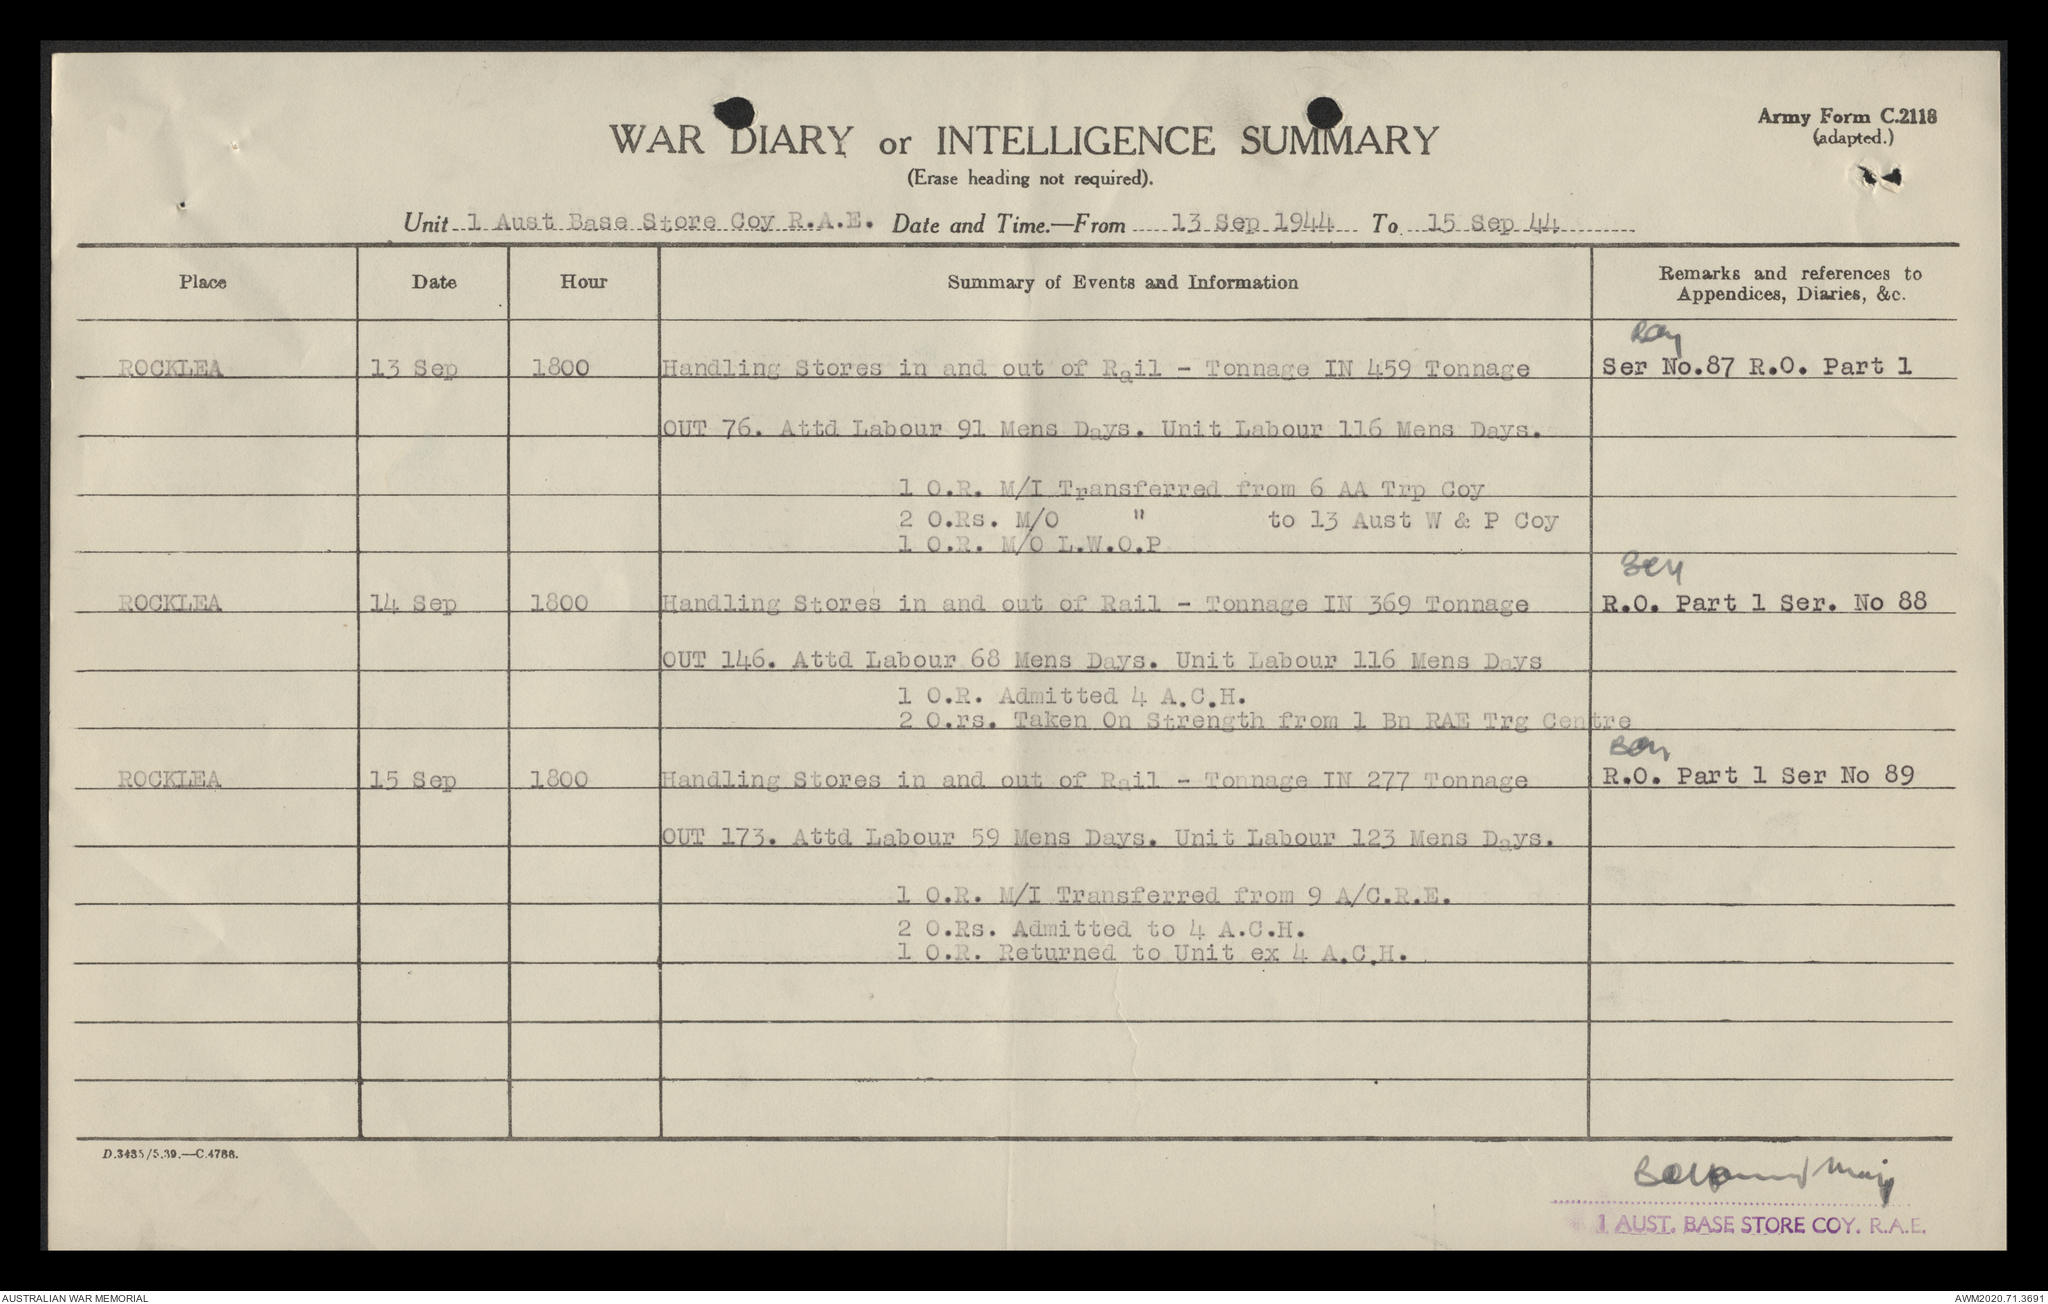 Army Form C.2118
(adapted.)
WAR DIARY or INTELLIGENCE SUMMARY
(Erase heading not required).
Unit 1 Aust Base Store Coy R.A.E. Date and Time.—From 13 Sep 1944 To 15 Sep 44
Place Date Hour Summary of Events and Information Remarks and references to
Appendices, Diaries, &c.
ROCKLEA 13 Sep 1800 Handling Stores in and out of Rail - Tonnage IN 459 Tonnage Ser No.87 R.O. Part 1
OUT 76. Attd Labour 91 Mens Days. Unit Labour 116 Mens Days.
1 O.R. M/I Transferred from 6 AA Trp Coy
2 O.Rs. M/O " to 13 Aust W & P Coy
1 O.R. M/O L.W.O.P
ROCKLEA 14 Sep 1800 Handling Stores in and out of Rail - Tonnage IN 369 Tonnage R.O. Part 1 Ser. No 88
OUT 146. Attd Labour 68 Mens Days. Unit Labour 116 Mens Days
1 O.R. Admitted 4 A.C.H.
2 O.rs. Taken On Strength from 1 Bn RAE Trg Centre
ROCKLEA 15 Sep 1800 Handling Stores in and out of Rail - Tonnage IN 277 Tonnage R.O. Part 1 Ser No 89
OUT 173. Attd Labour 59 Mens Days. Unit Labour 123 Mens Days.
1 O.R. M/I Transferred from 9 A/C.R.E.
2 O.Rs. Admitted to 4 A.C.H.
1 O.R. Returned to Unit ex 4 A.C.H.
D.3435/5.39.—C.4788.
Maj
1 AUST. BASE STORE COY. R.A.E.
AUSTRALIAN WAR MEMORIAL AWM2020.71.3691